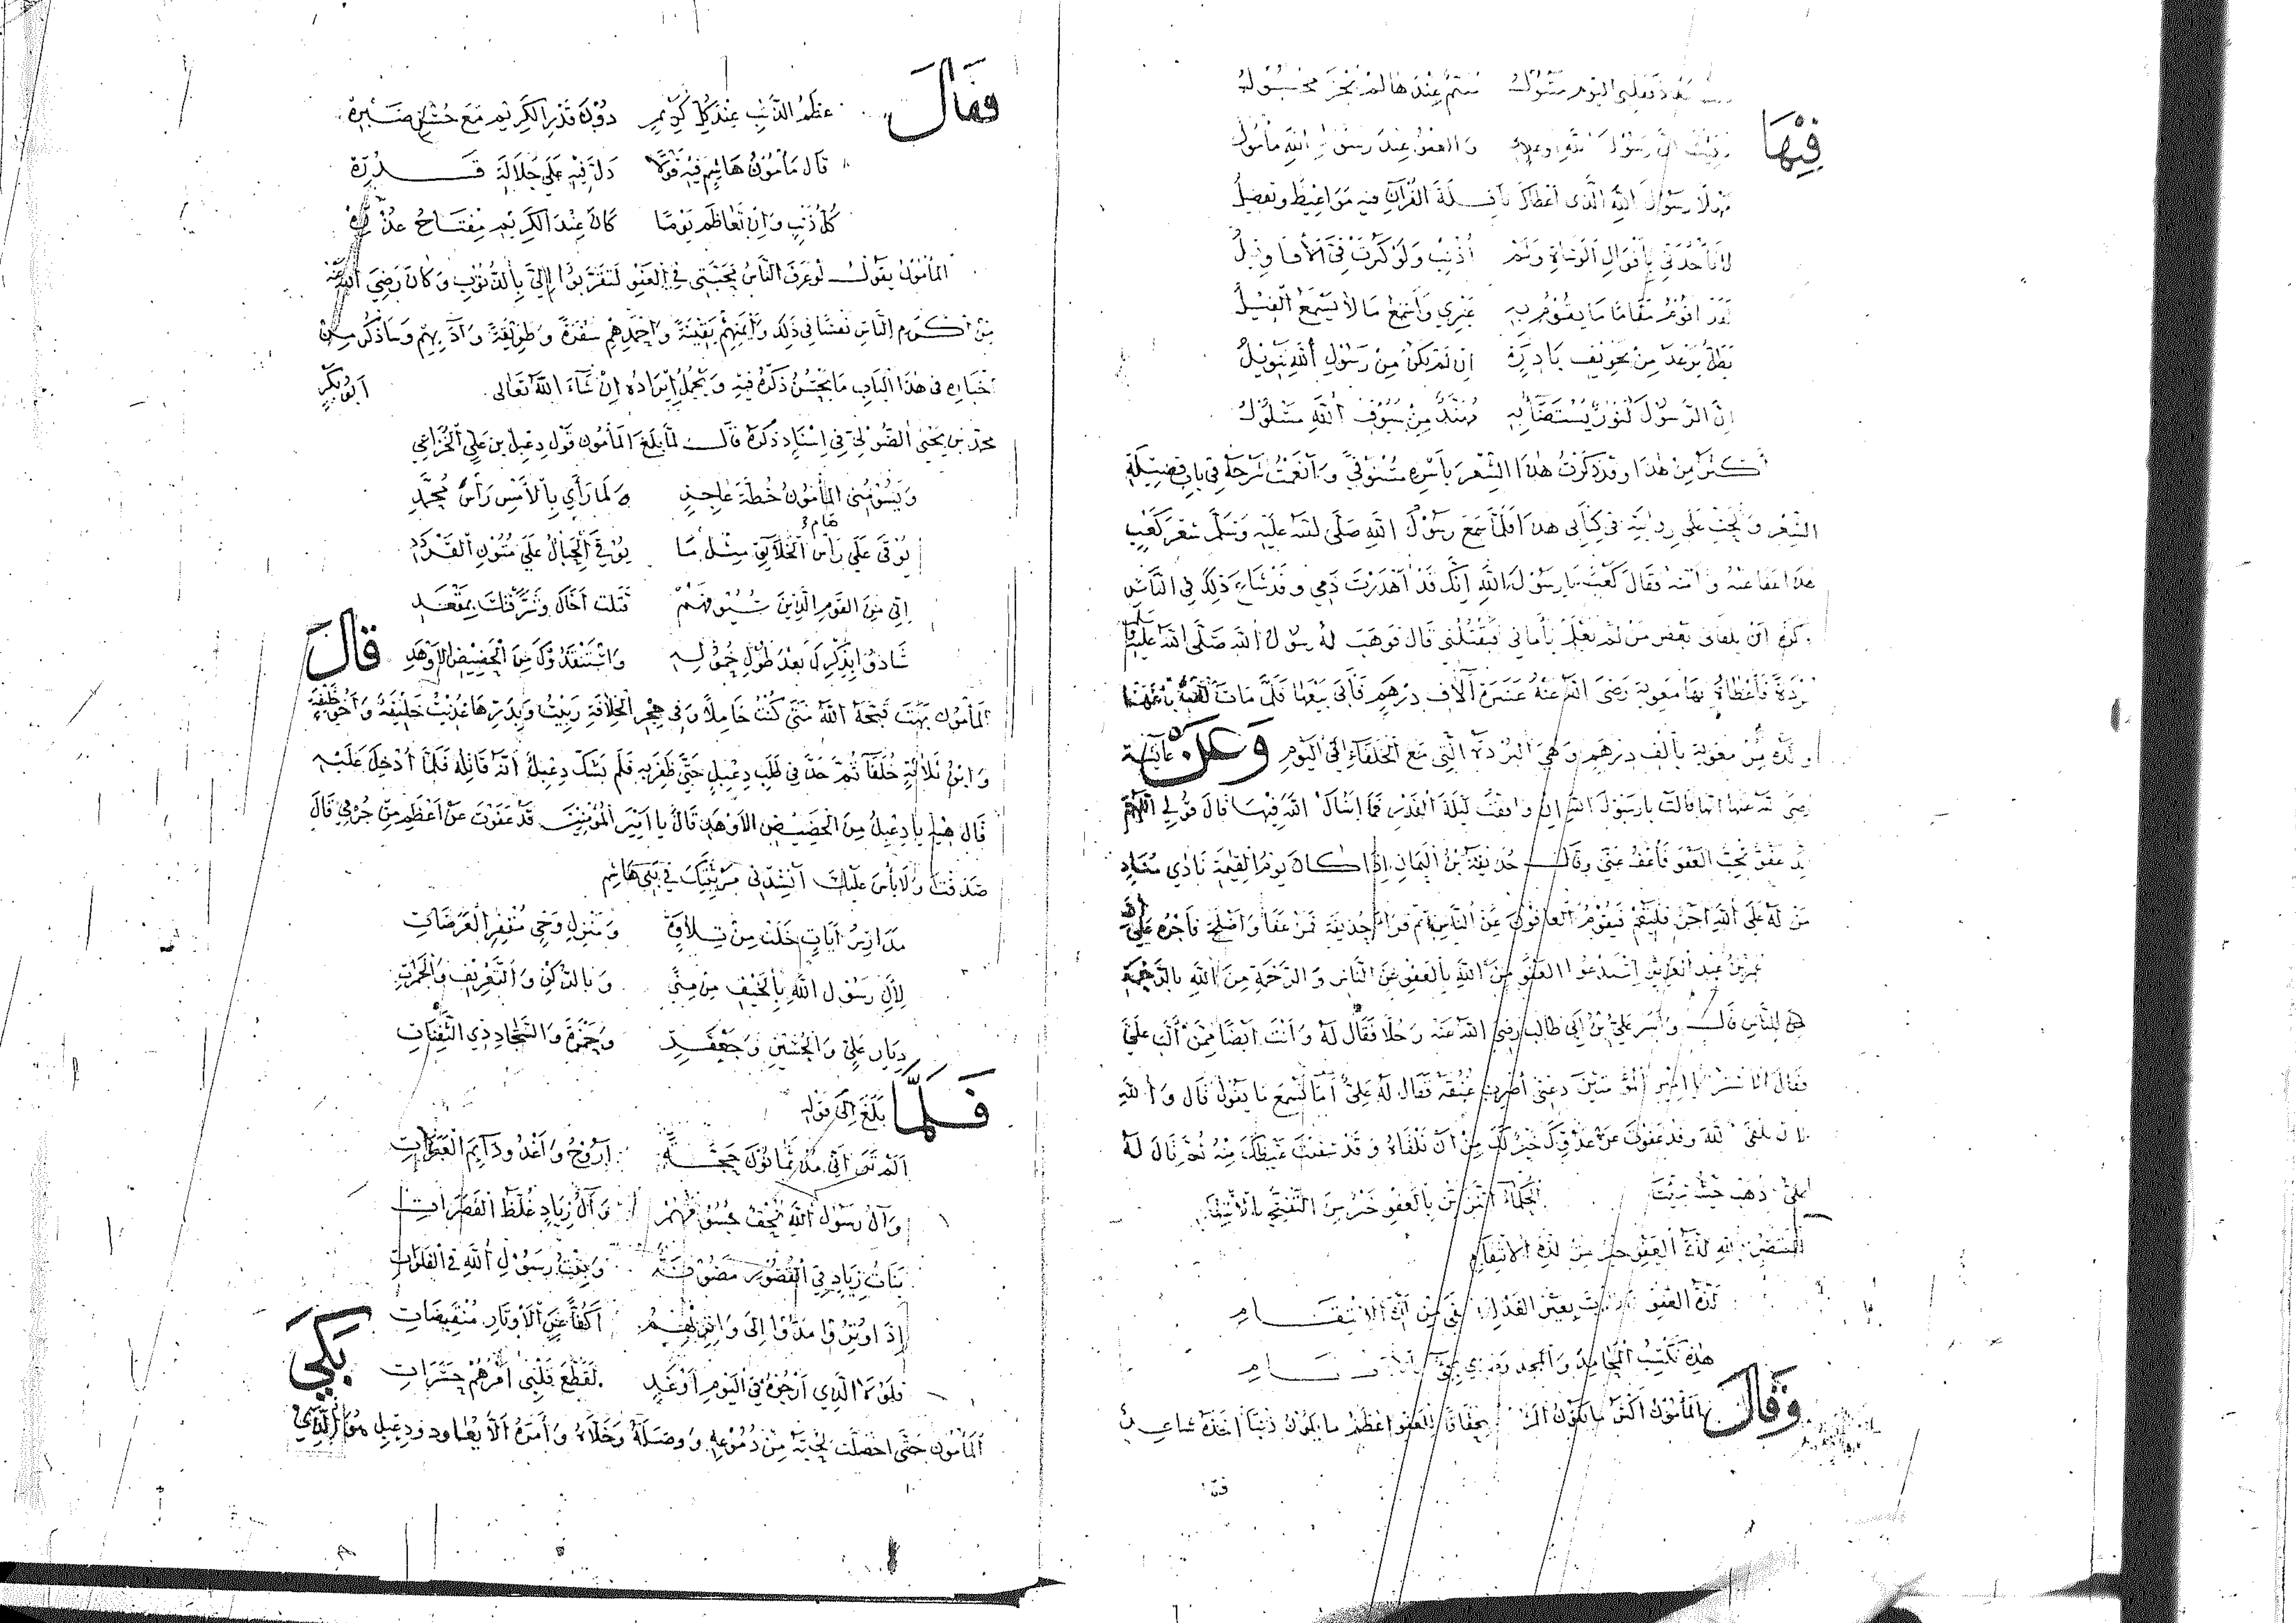 سعاد فقلبى اليوم متبول متيم عندها لم يجز مكبول
فيها
نبئت ان رسول الله اوعدنى والعفو عند رسول الله مأمول
مهلا رسول الله الذى اعطاك نافلة القرآن فيه مواعيظ وتفصيل
لا تأخذنى بأقوال الوشاة ولم أذنب ولو كثرت فى الأقاويل
لقد اقوم مقاما ما يقوم به غيري وأسمع ما لا يسمع الفيل
يظل يرعد من تخويف بادرة ان لم يكن من رسول الله تنويل
ان الرسول لنور يستضاء به مهند من سيوف الله مسلول
أكثر من هذا وقد ذكرت هذا الشعر بأسره مستوفى وانعمت شرحه فى باب فضيلة
الشعر على روايته فى كتابى هذا فلما سمع رسول الله صلى الله عليه وسلم شعر كعب
هذا عفا عنه وأمنه فقال كعب يا رسول الله انك قد أهدرت دمي وقد شاع ذلك في الناس
أن يلقانى بعض من لم يعلم بأمانى فيقتلنى قال فوهب له رسول الله صلى الله عليه وسلم
بردة فأعطاه بها معوية رضى الله عنه عشرة آلاف درهم فأبى بيعها فلما مات كعب باعها
ولده من معوية بألف درهم وهى البردة التى مع الخلفاء الى اليوم وعن عائشة
رضى الله عنها انها قالت يا رسول الله ان وافقت ليلة القدر فما اسأل الله فيها قال قولي اللهم
انك عفو تحب العفو فاعف عنى وقال حذيفة بن اليمان اذا كان يوم القيمة نادى مناد
من له على الله اجر فليقم فيقوم العافون عن الناس ثم قرأ حذيفة فمن عفا واصلح فأجره على الله
عمر بن عبد العزيز استدعوا العفو من الله بالعفو عن الناس والرحمة من الله بالرحمة
للناس قال وأسر علي بن أبي طالب رضي الله عنه رجلا فقال له وأنت ايضا ممن ألب علي
فقال الاشتر يا امير المؤمنين دعنى أضرب عنقه فقال له علي أما تسمع ما يقول قال والله
لان تلقى الله وقد عفوت عن عدوك خير لك من أن تلقاه وقد شفيت غيظك منه ثم قال له
على اذهب حيث شئت الحكماء التزين بالعفو خير من التقبح بالانتقام
المنتصر بالله لذة العفو خير من لذة الانتقام
لذة العفو بعين العدل من لذة الانتقام
هذه تكسب المحامد والمجد
وقال المأمون أكثر ما يكون استحقاقا للعفو اعظم ما يكون ذنبا اخذه شاعر
فقال
عظم الذنب عند كل كريم دون قدر الكريم مع حسن صبره
قال مأمون هاشم فيه قولا دل فيه على جلالة قدره
كل ذنب وان تعاظم يوما كان عند الكريم مفتاح عذره
المأمون يقول لو عرف الناس محبتى فى العفو لتقربوا الي بالذنوب وكان رضي الله عنه
من أكرم الناس نفسا فى ذلك وأيمنهم نقيبة واحمدهم سفرة وطريقة وآدبهم وسأذكر من
اخباره فى هذا الباب ما يحسن ذكره فيه ويجمل إيراده ان شاء الله تعالى أبو بكر
محمد بن يحيى الصولى فى اسناد ذكره قال لما بلغ المأمون قول دعبل بن علي الخزاعي
ويسومنى المأمون خطة عاجز ولما رأي بالأمس رأس محمد
هام
يوفى على رأس الخلائق مثل ما يوفى الجبال على متون القردد
اني من القوم الذين سيوفهم قتلت أخاك وشرفتك بمقعد
شادوا بذكرك بعد طول خموله واستنقذوك من الحضيض الأوهد قال
المأمون بهت قبحه الله متى كنت خاملا وفى حجر الخلافة ربيت وبدرها غذيت خليفة وأخو خليفة
وابن ثلاثة خلفاء ثم جد فى طلب دعبل حتى ظفر به فلم يشك دعبل أنه قاتله فلما أدخل عليه
قال هيه يا دعبل من الحضيض الأوهد قال يا امير المؤمنين قد عفوت عن أعظم من جرمي قال
صدقت ولا بأس عليك أنشدنى مرثيتك فى بنى هاشم
مدارس آيات خلت من تلاوة ومنزل وحي مقفر العرصات
لآل رسول الله بالخيف من منى وبالركن والتعريف والجمرات
ديار علي والحسين وجعفر وحمزة والسجاد ذي الثفنات
فلما بلغ إلى قوله
ألم تر أنى مذ ثمانون حجة أروح وأغدو دائم الحسرات
وآل رسول الله نحف جسومهم وآل زياد غلظ القصرات
بنات زياد فى القصور مصونة وبنت رسول الله فى الفلوات
اذا وتروا مدوا الى واتريهم أكفا عن الأوتار منقبضات
فلولا الذي أرجوه فى اليوم أو غد لقطع قلبى أثرهم حسرات بكى
المأمون حتى اخضلت لحيته من دموعه ووصله وخلاه وأمره ألا يعاود ودعبل هو الذي